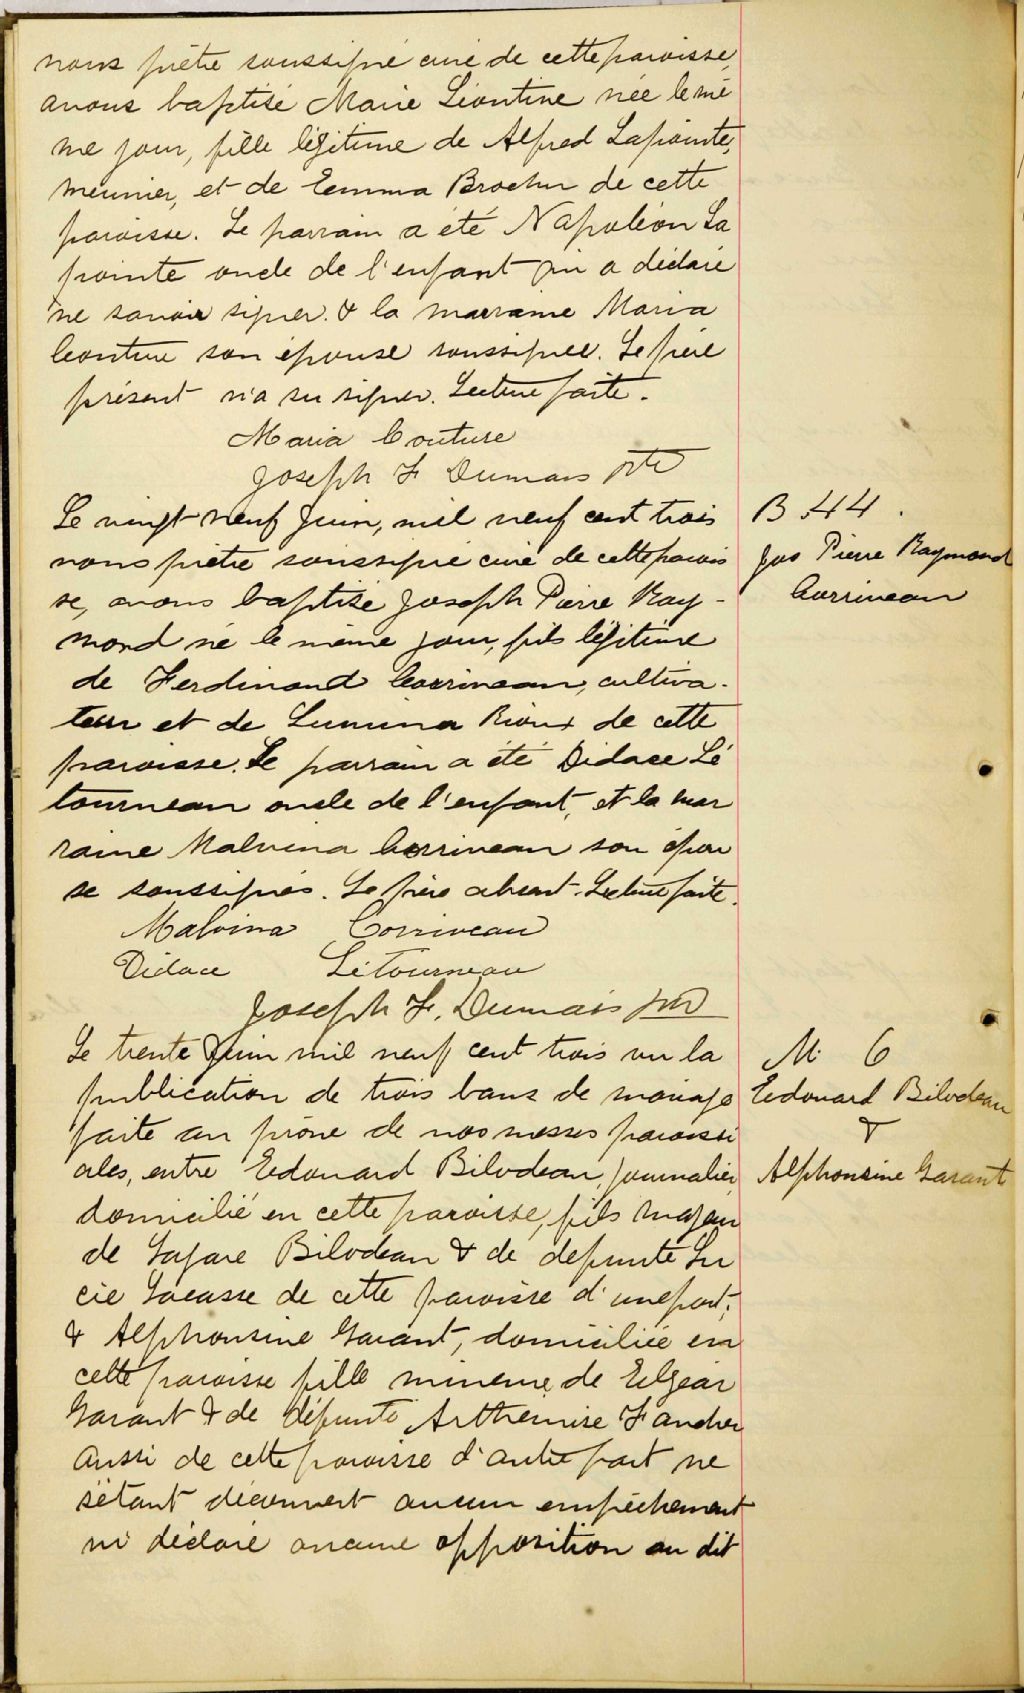 nous prêtre soussigné curé de cette paroisse,
avons baptisé Marie Léontine née le mê
me jour, fille légitime de Alfred Lapointe,
meunier, et de Emma Brochu de cette
paroisse. Le parrain a été Napoléon La
pointe oncle de l'enfant qui a déclaré
ne savoir signer. & la marraine Maria
Couture son épouse soussignée. Le père
présent n'a su signer. Lecture faite.
Maria Couture
Joseph F Dumais Ptr
Le vingt-neuf Juin, mil neuf cent trois
nous prêtre soussigné curé de cette parois
se, avons baptisé Joseph Pierre Ray-
mond né le même jour, fils légitime
de Ferdinand Corriveau, cultiva-
teur et de Lumina Rioux de cette
paroisse. Le parrain a été Didace Lé
tourneau oncle de l'enfant, et la mar
raine Malvina Corriveau son épou
se soussignés. Le père absent. Lecture faite.
Malvina Corriveau
Didace Létourneau
Joseph F. Dumais ptr
Le trente Juin mil neuf cent trois vu la
publication de trois bans de mariage
faite au prône de nos messes paroissi
ales, entre Edouard Bilodeau, journalier,
domicilié en cette paroisse, fils majeur
de Lazare Bilodeau & de defunte Lu
cie Lacasse de cette paroisse d'une part;
& Alphonsine Garant, domiciliée en
cette paroisse fille mineure de Elzéar
Garant & de défunte Arthemise Fancher
aussi de cette paroisse d'autre part ne
s'étant découvert aucun empêchement
ni déclaré aucune opposition au dit
B 44.
Jos Pierre Raymond
Corriveau
M. 6
Edouard Bilodeau
&
Alphonsine Garant